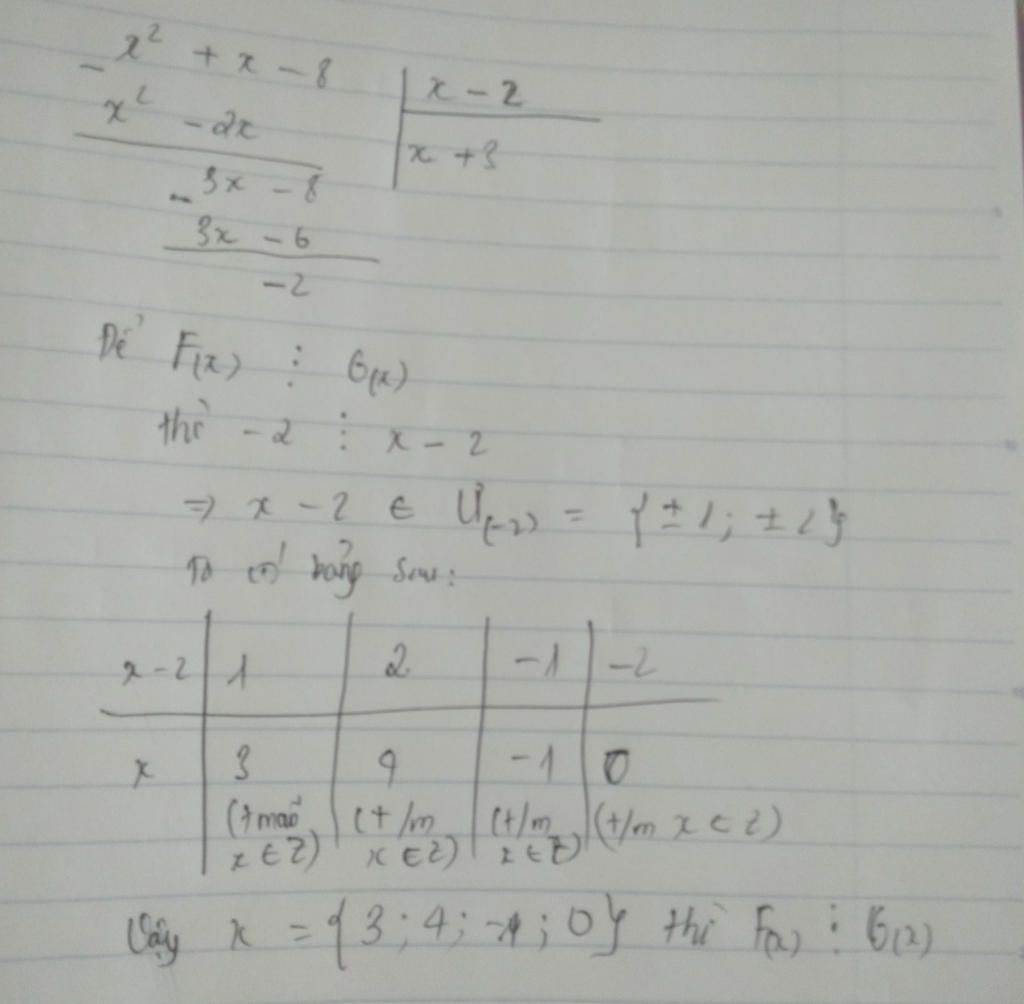 x² + x - 8 | x - 2
x² - 2x | x + 3
- 3x - 8
3x - 6
-2
Để F(x) ⋮ G(x)
thì -2 ⋮ x - 2
⇒ x - 2 ∈ Ư(-2) = {±1; ±2}
Ta có bảng sau:
x-2 | 1 | 2 | -1 | -2
x | 3 | 4 | -1 | 0
(t/m x ∈ Z) | (t/m x ∈ Z) | (t/m x ∈ Z)
x ∈ Z) | x ∈ Z) | x ∈ Z)
Vậy x = {3; 4; -1; 0} thì F(x) ⋮ G(x)